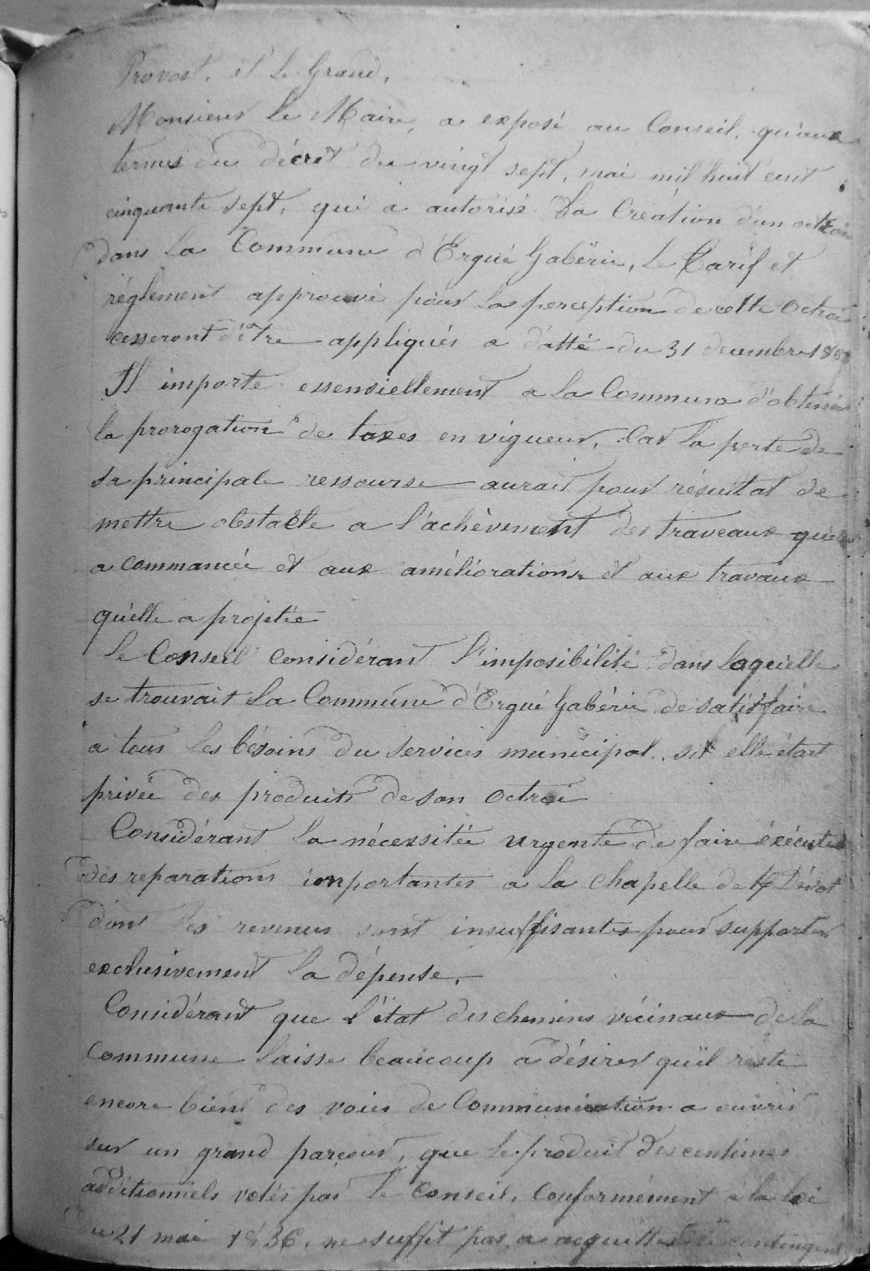 Provost, et Le Grand,
Monsieur Le Maire, a exposé au Conseil, qu'aux
termes du décret du vingt sept, mai mil huit cent
cinquante sept, qui a autorisé La Création d'un octroi
dans La Commune d'Ergué Gabéric, Le Tarif et
réglement approuvé pour La perception de cette Octroi
cesseront d'être appliqués a datté du 31 decembre
Il importe essensiellement a La Commune d'obtenir
la prorogation de taxes en vigueur, Car La perte de
sa principale ressourse aurait pour résultat de
mettre obstacle a l'achèvement des traveaux qu'elle
a commancée et aux améliorations et aux travaux
qu'elle a projetée
Le Conseil considérant l'imposibilité dans Laquelle
se trouvait La Commune d'Ergué Gabéric de satisfaire
a tous Les bésoins du Services municipal. si elle était
privée des produits de son Octroi
Considérant La nécessitée urgente de faire éxécuter
des reparations importantes a La Chapelle de Dévot
dont les revenus sont insuffisantes pour supporter
exclusivement La dépense,
Considérant que L'état des chemins vicinaux de la
Commune Laisse beaucoup a désirer qu'il reste
encore bient des voies de Communication a ouvrir
sur un grand parcour, que Le produit des centimes
additionnels votés par Le Conseil, Conformément a la loi
du 21 mai 1836, ne suffit pas a acquitter le contingent